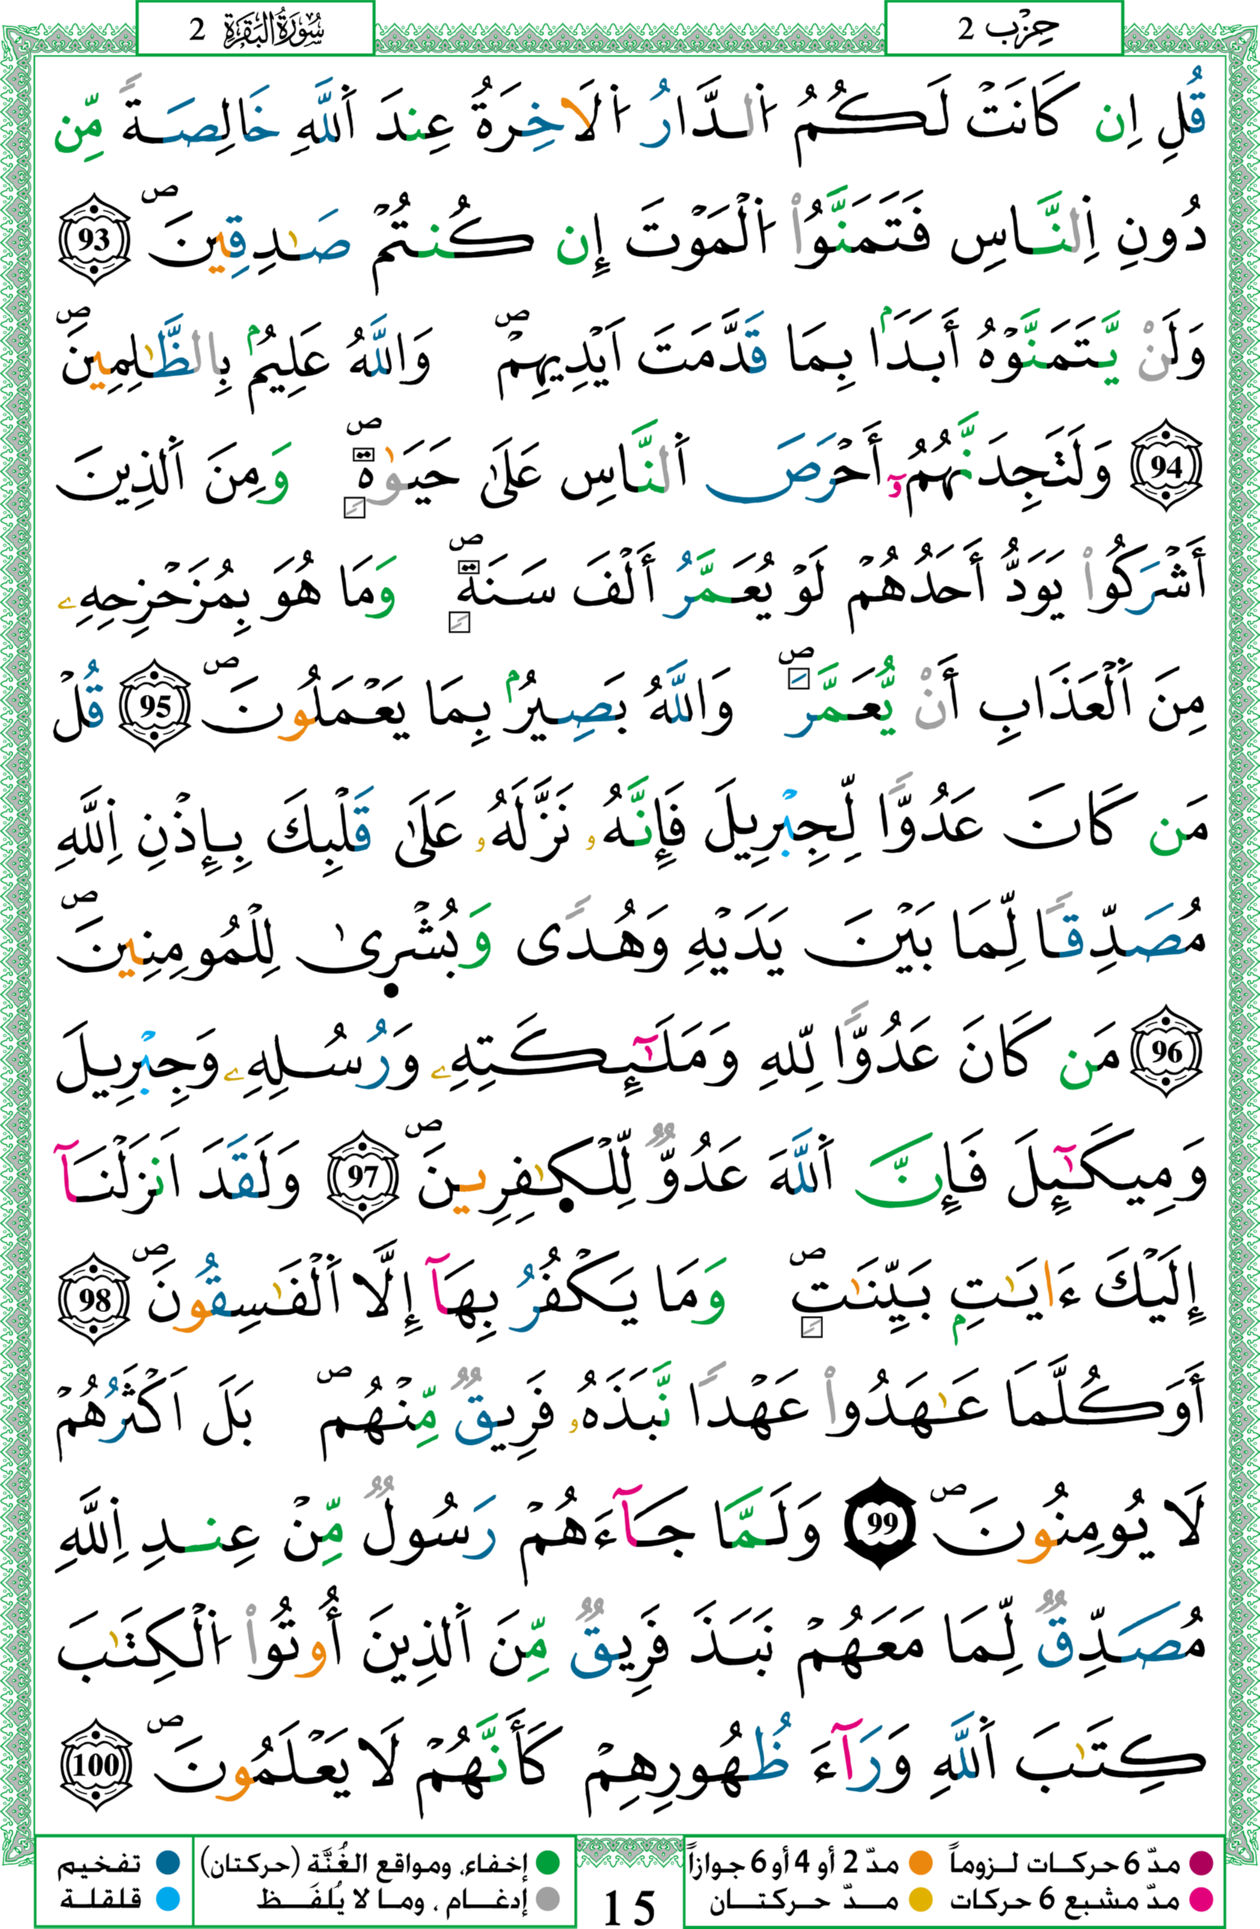 حِزْب 2
سُورَةُ البَقَرَةِ 2
قُلِ اِن كَانَتْ لَكُمُ اُ۬لدَّارُ اُ۬لَاخِرَةُ عِندَ اَ۬للَّهِ خَالِصَةٗ مِّن
دُونِ اِ۬لنَّاسِ فَتَمَنَّوُاْ اُ۬لْمَوْتَ إِن كُنتُمْ صَٰدِقِينَۖ 93
وَلَنْ يَّتَمَنَّوْهُ أَبَدَاۢ بِمَا قَدَّمَتَ اَيْدِيهِمْۖ وَاللَّهُ عَلِيمُۢ بِالظَّٰلِمِينَۖ
94 وَلَتَجِدَنَّهُمُۥٓ أَحْرَصَ اَ۬لنَّاسِ عَلَىٰ حَيَوٰةٖۖ وَمِنَ اَ۬لذِينَ
أَشْرَكُواْ يَوَدُّ أَحَدُهُمْ لَوْ يُعَمَّرُ أَلْفَ سَنَةٖۖ وَمَا هُوَ بِمُزَحْزِحِهِۦ
مِنَ اَ۬لْعَذَابِ أَنْ يُّعَمَّرَۖ وَاللَّهُ بَصِيرُۢ بِمَا يَعْمَلُونَۖ 95 قُلْ
مَن كَانَ عَدُوّٗا لِّجِبْرِيلَ فَإِنَّهُۥ نَزَّلَهُۥ عَلَىٰ قَلْبِكَ بِإِذْنِ اِ۬للَّهِ
مُصَدِّقٗا لِّمَا بَيْنَ يَدَيْهِ وَهُدٗى وَبُشْر۪ىٰ لِلْمُومِنِينَۖ
96 مَن كَانَ عَدُوّٗا لِّلهِ وَمَلَٰٓئِكَتِهِۦ وَرُسُلِهِۦ وَجِبْرِيلَ
وَمِيكَٰٓئِلَ فَإِنَّ اَ۬للَّهَ عَدُوّٞ لِّلْكٰ۪فِرِينَۖ 97 وَلَقَدَ اَنزَلْنَآ
إِلَيْكَ ءَايَٰتِۢ بَيِّنَٰتٖۖ وَمَا يَكْفُرُ بِهَآ إِلَّا اَ۬لْفَٰسِقُونَۖ 98
أَوَكُلَّمَا عَٰهَدُواْ عَهْدٗا نَّبَذَهُۥ فَرِيقٞ مِّنْهُمۖ بَلَ اَكْثَرُهُمْ
لَا يُومِنُونَۖ 99 وَلَمَّا جَآءَهُمْ رَسُولٞ مِّنْ عِندِ اِ۬للَّهِ
مُصَدِّقٞ لِّمَا مَعَهُمْ نَبَذَ فَرِيقٞ مِّنَ اَ۬لذِينَ أُوتُواْ اُ۬لْكِتَٰبَ
كِتَٰبَ اَ۬للَّهِ وَرَآءَ ظُهُورِهِمْ كَأَنَّهُمْ لَا يَعْلَمُونَۖ 100
مدّ 6 حركات لـزوماً مدّ 2 أو 4 أو 6 جوازاً
مدّ مشبع 6 حركات مـدّ حـركتـان
15
إخفاء، ومواقع الغُنَّة (حركتان)
إدغـام ، ومـا لا يُلفَـظ
تفخيم
قلقلة